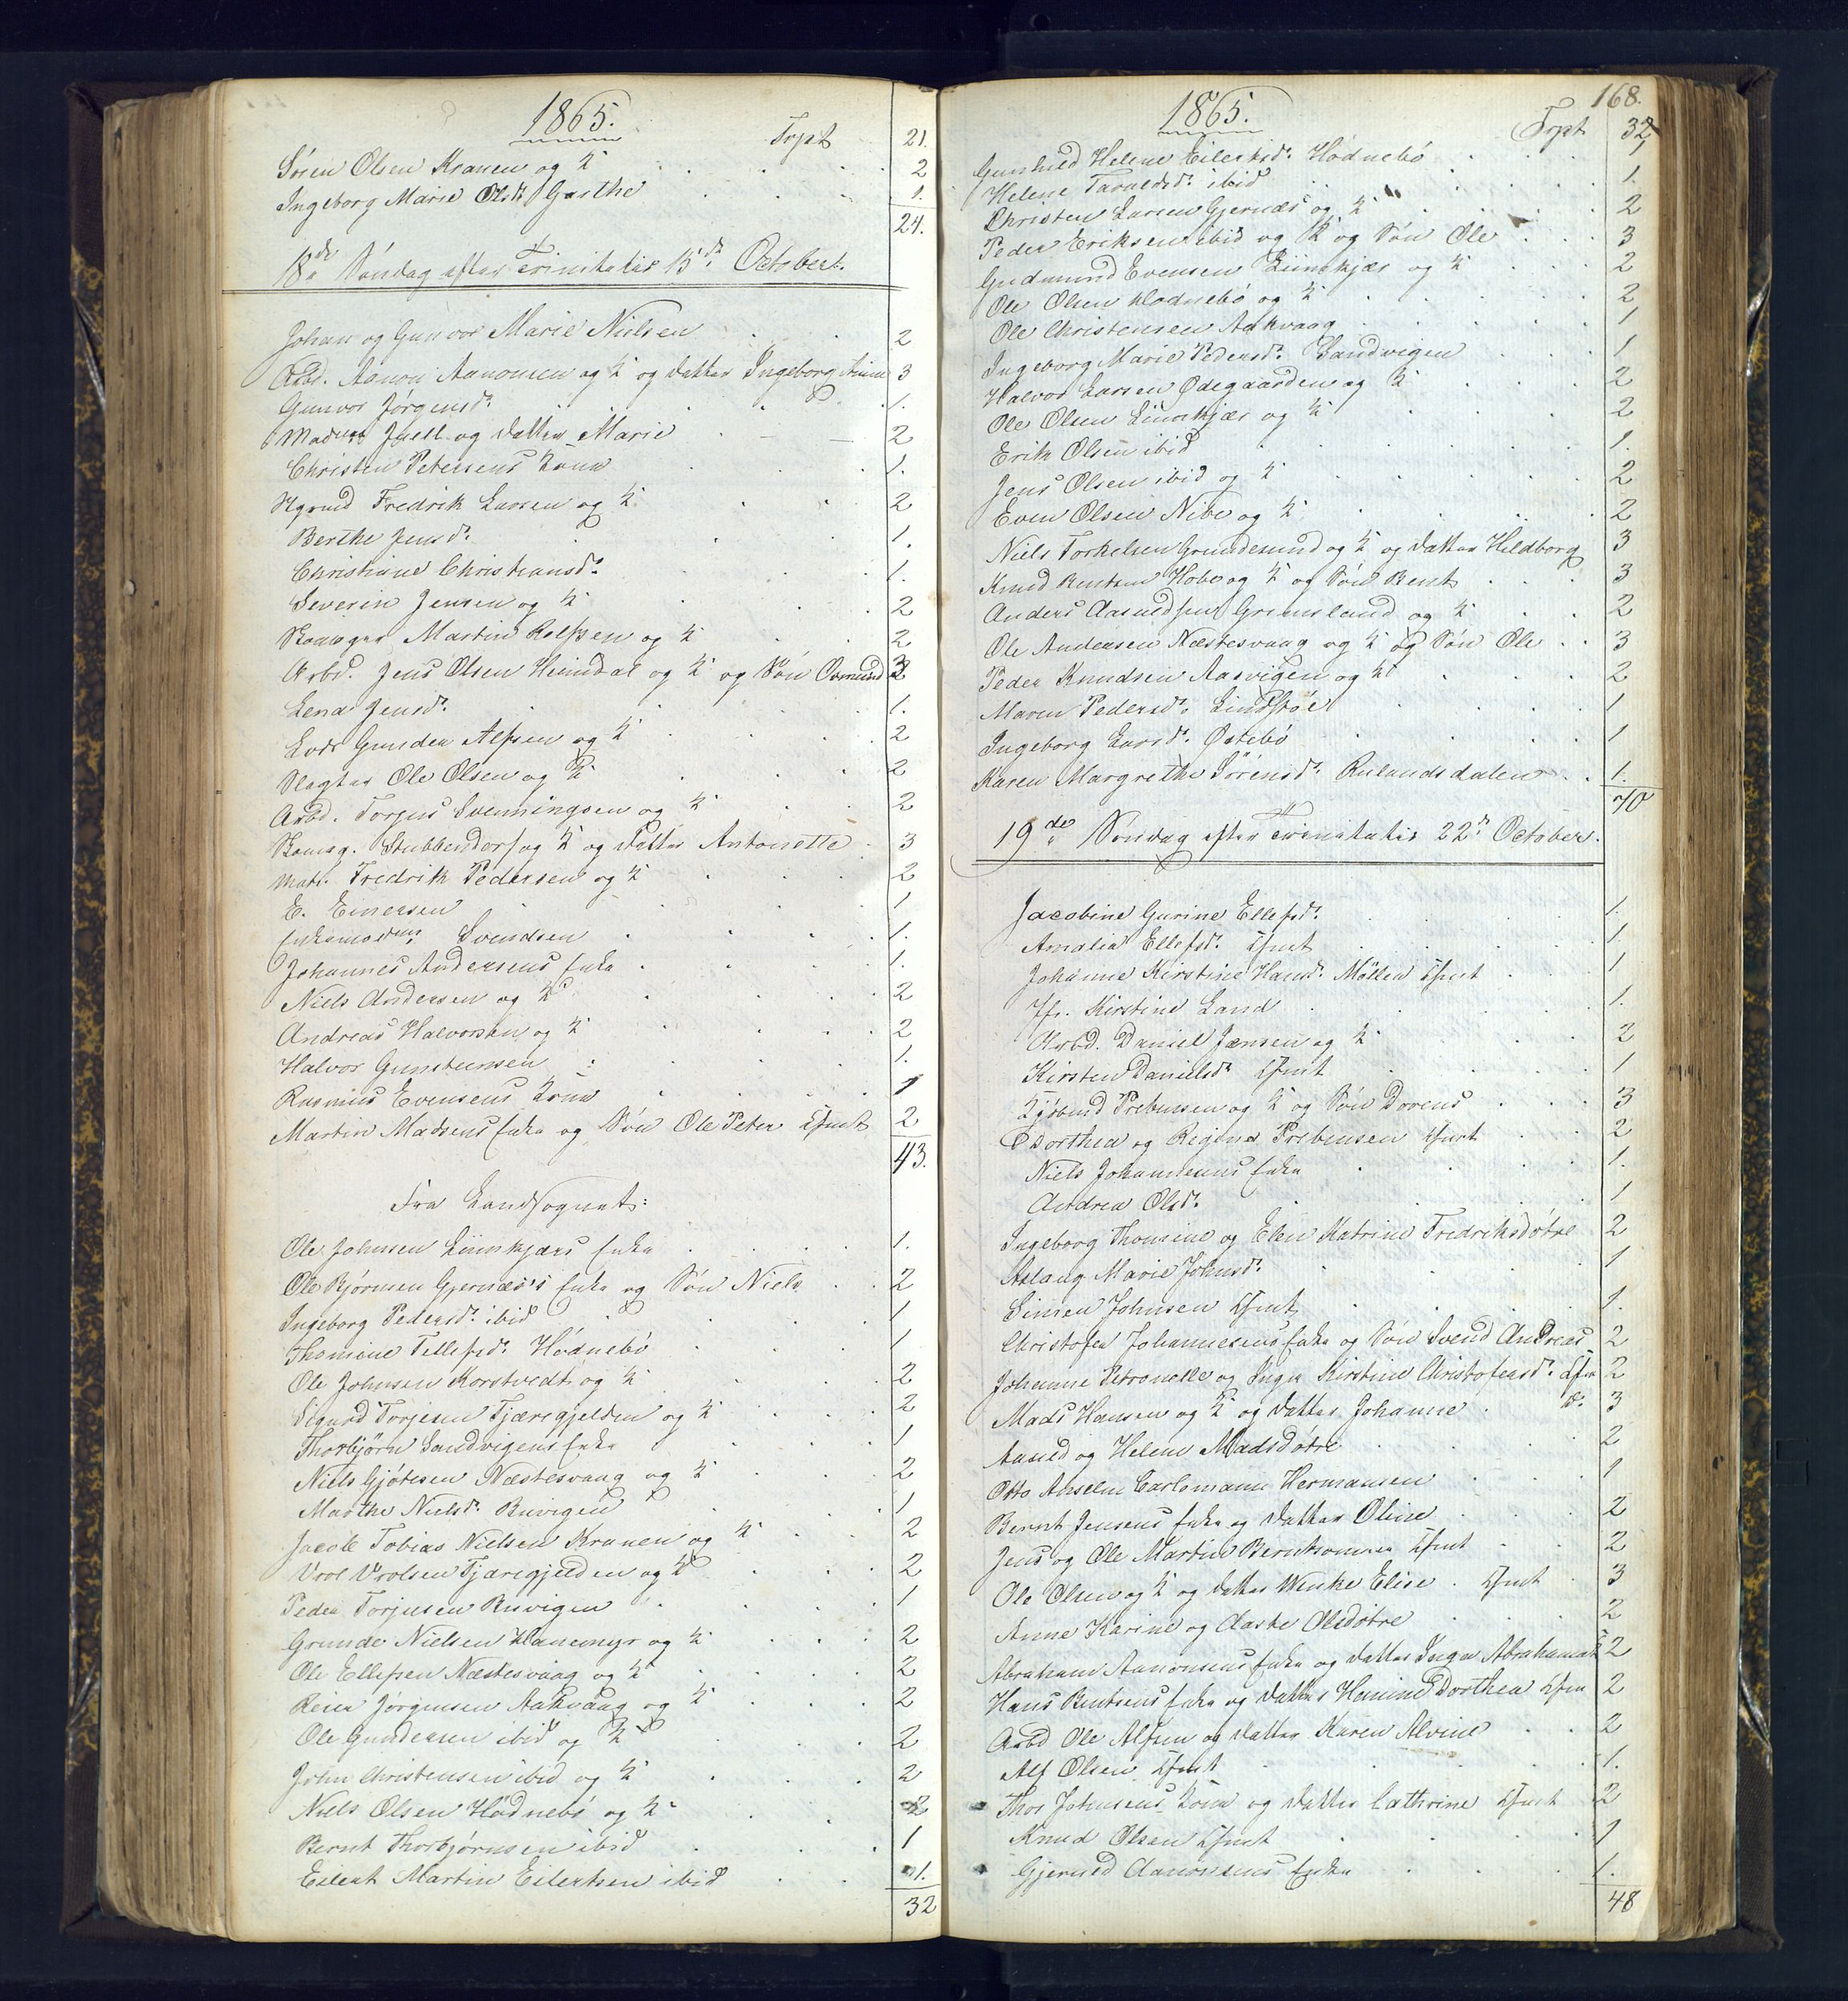 1865.
Trpt 21.
Søren Olsen Kranen og K. 2
Ingeborg Marie Olsdr Garthe 1.
24.
18de Søndag efter Trinitatis 15de October.
Johan og Gunvor Marie Nielsen 2
Arbd. Aanon Aanonsen og K. og Datter Ingeborg Anine 3
Gunvor Jørgensdr. 1.
Madme Juell og Datter Marie 2
Christen Petersens Kone 1.
Fredrik Larsen og K. 2
Berthe Jensdr. 1.
Christiane Christiansdr. 1.
Severin Jensen og K. 2
Martin Rolfsen og K. 2
Arbd. Jens Olsen Heimdal og K. og Søn Osmund 3
Lena Jensdr. 1.
Lods Gunder Alfsen og K. 2
Slagter Ole Olsen og K. 2
Arbd. Torjus Svenningsen og K. 2
Stubbendorf og K. og Datter Antonette 3
Matr. Fredrik Pedersen og K. 2
E. Einersen 1
Enkemadme Svendsen 1.
Johannes Andersens Enke 1.
Niels Andersen og K. 2
Andreas Halvorsen og K. 2
Halvor Gunstensen 1.
Rasmus Evensens Kone 1
Martin Madsens Enke og Søn Ole Peter Cfmt 2
43.
Fra Landsognet:
Ole Johnsen Liimkjærs Enke 1.
Ole Bjørnsen Gjernæs's Enke og Søn Niels 2
Ingeborg Pedersdr. ibid 1
Thomine Tellefsdr. Hødnebø 1
Ole Johnsen Korstvedt og K. 2
Sigurd Torjesen Tjæregjelden og K. 2
Thorbjørn Sandvigens Enke 1
Niels Gjøtesen Næstesvaag og K. 2
Marthe Nielsdr. Buvigen 1
Jacob Tobias Nielsen Kranen og K. 2
Vrol Vrolsen Tjæregjelden og K. 2
Peder Torjusen Buvigen 1
Grunde Nielsen Hanemyr og K. 2
Ole Ellefsen Næstesvaag og K. 2
Reier Jørgensen Aakvaag og K. 2
Ole Gundersen ibid og K. 2
John Christensen ibid og K. 2
Niels Olsen Hødnebø og K. 2
Bernt Thorbjørnsen ibid 1
Eilert Martin Eilertsen ibid 1.
32
168.
1865.
Trpt 32
Gunhild Helene Eilertsdr. Hødnebø 1
Helene Taraldsdr. ibid 1.
Christen Larsen Gjernæs og K. 2
Peder Eriksen ibid og K. og Søn Ole 3
Gudmund Evensen Liimkjær og K. 2
Ole Olsen Hødnebø og K. 2
Ole Christensen Aakvaag 1
Ingeborg Marie Pedersdr. Sandvigen 1
Halvor Larsen Ødegaarden og K. 2
Ole Olsen Liimkjær og K. 2
Erik Olsen ibid 1.
Jens Olsen ibid og K. 2
Even Olsen Nibe og K. 2
Niels Torkelsen Grundesund og K. og Datter Hildborg 3
Knud Bentsen Hobe og K. og Søn Bent 3
Anders Aasuldsen Grimsland og K. 2
Ole Andersen Næstesvaag og K. og Søn Ole 3
Peder Knudsen Aasvigen og K. 2
Maren Pedersdr. Lindstøl 1
Ingeborg Larsdr. Østebø 1
Karen Margrethe Sørensdr. Rulandsdalen 1.
70
19de Søndag efter Trinitatis 22de October.
Jacobine Gurine Ellefsdr. 1.
Amalia Ellefsdr. Cfmt 1.
Johanne Kirstine Hansdr. Møller Cfmt 1
Jfr. Kirstine Land 1.
Arbd. Daniel Jensen og K. 2
Kirsten Danielsdr. Cfmt 1
Prebensen og K. og Søn Dorens 3
Dorthea og Regine Prebensen Cfmt 2
Niels Johannesens Enke 1.
Andrea Olsdr. 1
Ingeborg Thomine og Elen Katrine Fredriksdøtre 2
Aslaug Marie Johnsdr. 1
Simen Johnsen Cfmt 1.
Christofer Johannesens Enke og Søn Svend Andreas 2
Johanne Petronelle og Inger Kirstine Christofersdr. Cfm 2
Mads Hansen og K. og Datter Johanne do. 3
Aasild og Helene Madsdøtre 2
Otto Anselm Carlomann Hermansen 1
Bernt Jensens Enke og Datter Oline 2
Jens og Ole Martin Berntsønner Cfmt 2
Ole Olsen og K. og Datter Wenke Elise Cfmt 3
Anne Karine og Aaste Olsdøtre 2
Abraham Aanonsens Enke og Datter Inger Abrahamsdr 2
Hans Bentsens Enke og Datter Hanine Dorthea Cfm 2
Arbd Ole Alfsen og Datter Karen Alvine 2
Alf Olsen Cfmt 1.
Thor Johnsens Kone og Datter Cathrine Cfmt 2
Knud Olsen Cfmt 1
Gjeruld Aanonsens Enke 1.
48